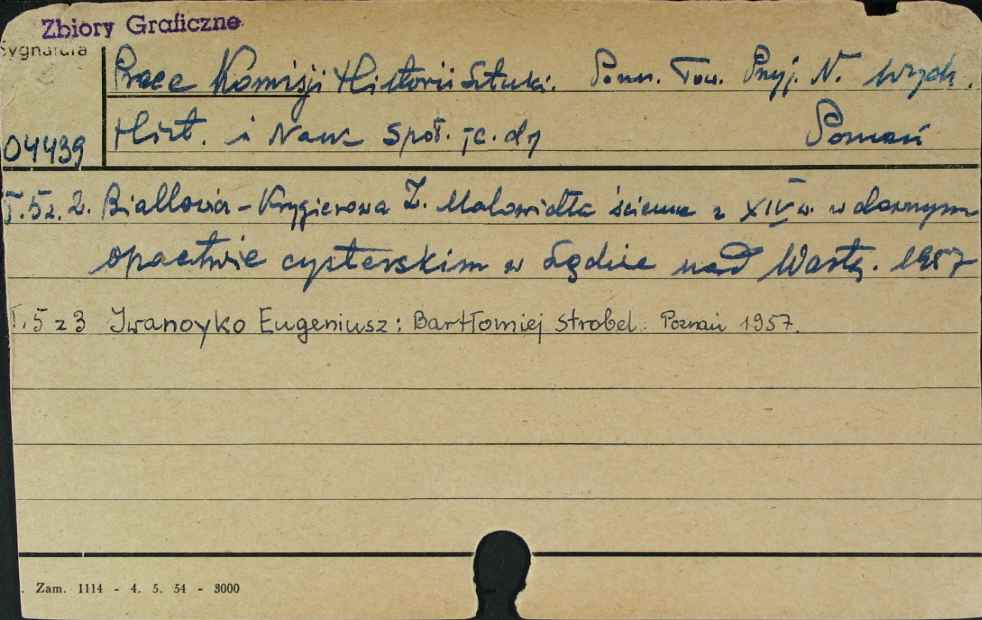 Zbiory Graficzne
Sygnatura
Prace Komisji Historii Sztuki. Pozn. Tow. Przyj. N. Wydz.
04439 Hist. i Nauk Społ. Poznań
T.5z. 2. Białłowicz-Krygierowa Z. Malowidła ścienne z XIV w. w dawnym
opactwie cysterskim w Lądzie nad Wartą. 1957
T.5 z 3 Iwanoyko Eugeniusz: Bartłomiej Strobel. Poznań 1957.
Zam. 1114 - 4. 5. 54 - 3000